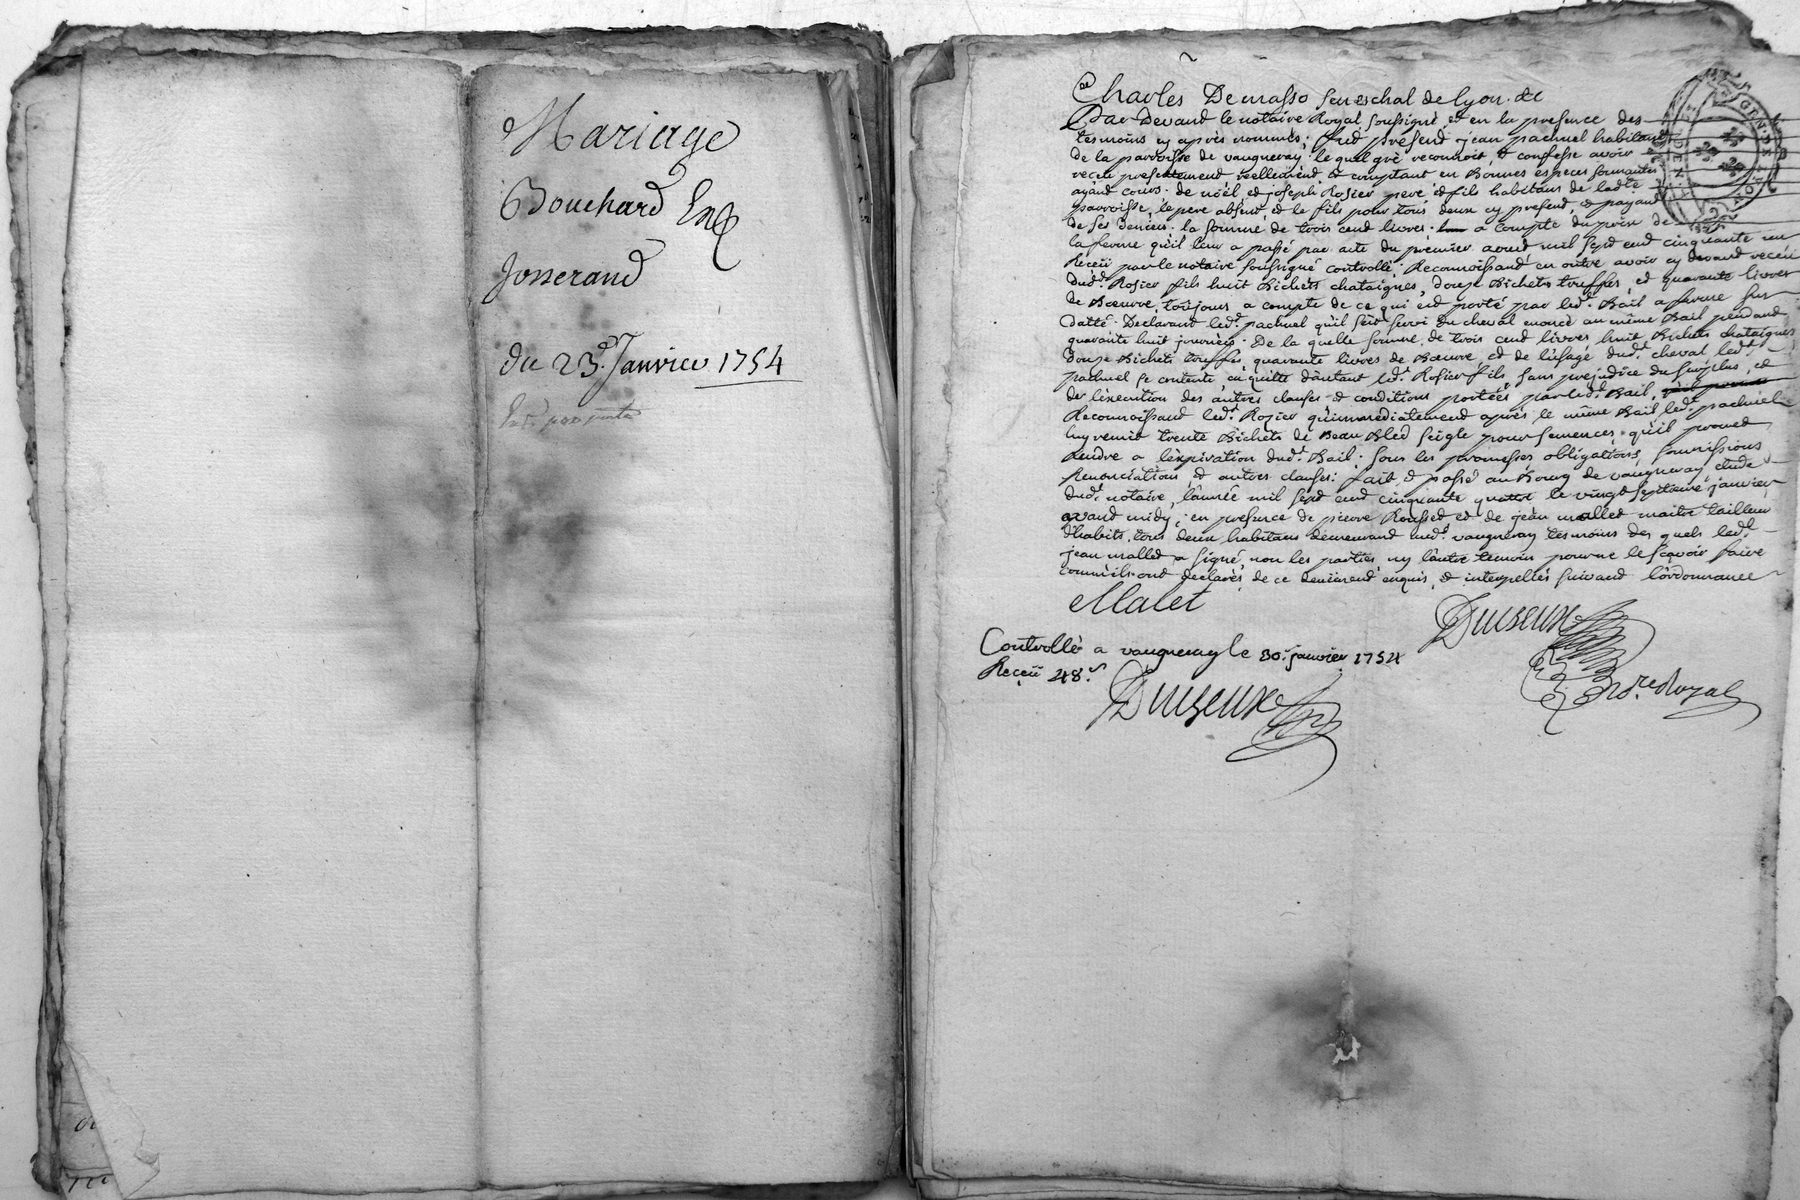 Mariage
Bouchard Et
Josserand
du 23e Janvier 1754
Charles Demasso seneschal de lyon. &c
Par Devand le notaire Royal soussigné et en la presence des
tesmoins cy après nommés; fut présend jean pachuel habitant
de la parroisse de vaugneray lequel gré reconnoit, & confesse avoir
receu presentement reellement & comptant en Bonnes especes sonnantes
ayand cours. de nöel et joseph Rosier pere & fils habitans de lad.te
parroisse, le pere absent, et le fils pour tous deux cy presend, & payand
de ses deniers. la somme de trois cend livres. a compte du prix de
la ferme qu'il leur a passé par acte du premier avril mil sept cend cinquante un
Receü par le notaire soussigné controllé. Reconnoissand en outre avoir cy devand receü
dud.t Rosier fils huit Bichets chataignes, douze Bichets truffes, et quarante livres
de Bœurre, toujours a compte de ce qui est porté par led.t Bail a ferme sus
datté. Declarand led.t pachuel qu'il s'est servi du cheval enoncé au même Bail pendand
quarante huit journées. De la quelle somme, de trois cend livres, huit Bichets chataignes
douze Bichets truffes, quarante livres de Bœurre, et de l'usage dud.t cheval led.t
pachuel se contente, en quitte d'autant led.t Rosier fils sans prejudice du surplus, et
de l'exécution des autres clauses & conditions portées par led.t Bail,
Reconnoissand led.t Rozier qu'immediatement après le même Bail led.t pachuel
luy remit trente Bichets de Beau Bled seigle pour semences, qu'il promet
Rendre a l'expiration dud.t Bail; sous les promesses obligations, soumissions
Renonciations, & autres clauses: fait & passé au Bourg de vaugneray etude
dud.t notaire, l'année mil sept cend cinquante quatre le vingt septieme janvier,
avand midy; en presence de pierre Rousset et de jean mallet maitre tailleur
d'habits, tous deux habitans demeurand aud.t vaugneray tesmoins des quels led.t
jean mallet a signé, non les parties, ny l'autre temoin pour ne le sçavoir faire
comm'ils ont declarés, de ce deüement enquis, & interpellés suivand l'ordonnance
Malet
Duizeux
Controllé a vaugneray le 30.e janvier 1754
Receü 48.s
No.re Royal
Duizeux